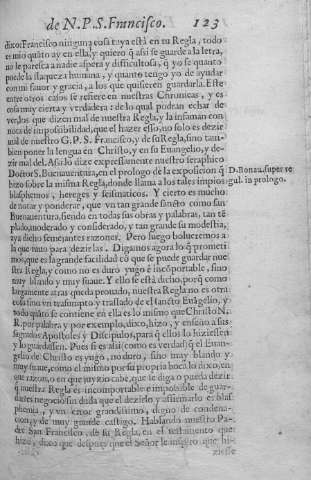 de N.P.S. Francisco. 123
dixo: Francisco ninguna cosa tuya està en tu Regla, todo
es mio quãto ay en ella, y quiero q̃ assi se guarde a la letra,
no le parezca a nadie aspera y dificultosa, q̃ yo se quanto
puede la flaqueza humana, y quanto tengo yo de ayudar
con mi fauor y gracia, a los que quisieren guardarla. Este
entre otros casos se refiere en nuestras Chronicas, y es
cosa muy cierta y verdadera: de lo qual podran echar de
ver, los que dizen mal de nuestra Regla, y la infaman con
nota de impossibilidad, que el hazer esso, no solo es dezir
mal de nuestro G.P.S. Francisco, y de su Regla, sino tam-
bien poner la lengua en Christo, y en su Euangelio, y de
zir mal del. Assi lo dize expressamente nuestro seraphico
Doctor S. Buenauentura, en el prologo de la exposicion q̃
D. Bonau. super re
hizo sobre la misma Regla, donde llama a los tales impios
gul. in prologo.
blasphemos, hereges y scismaticos. Y cierto es mucho
de notar y ponderar, que vn tan grande sancto como san
Buenauentura, siendo en todas sus obras y palabras, tan tẽ
plado, moderado y considerado, y tan grande su modestia,
aya dicho semejantes razones. Pero luego bolueremos a
lo que tuuo para dezirlas. Digamos agora lo q̃ prometi-
mos, que es la grande facilidad cõ que se puede guardar nue
stra Regla, y como no es duro yugo ẽ incõportable, sino
muy blando y muy suaue. Y ello se està dicho, porq̃ como
largamente atras queda prouado, nuestra Regla no es otra
cosa sino vn trasumpto y traslado del sancto Euãgelio, y
todo quãto se contiene en ella es lo mismo que Christo N.
R. por palabra y por exemplo, dixo, hizo, y enseño a sus
sagrados Apostoles y Discipulos, para q̃ ellos lo hiziessen
y lo guardassen. Pues si es assi (como es verdad) q̃ el Euan-
gelio de Christo es yugo, no duro, sino muy blando y
muy suaue, como el mismo por su propria boca lo dixo, en
que razon, o en que juyzio cabe, que se diga o pueda dezir
q̃ nuestra Regla es incomportable e impossible de guar-
dar: es negocio sin duda que el dezirlo y affirmarlo es blas
phemia, y vn error grandissimo, digno de condena-
cion, y de muy grande castigo. Hablando nuestro Pa-
dre San Francisco, de su Regla, en el testamento que
hizo, dixo que despues que el Señor le inspiro que hi-
ziesse